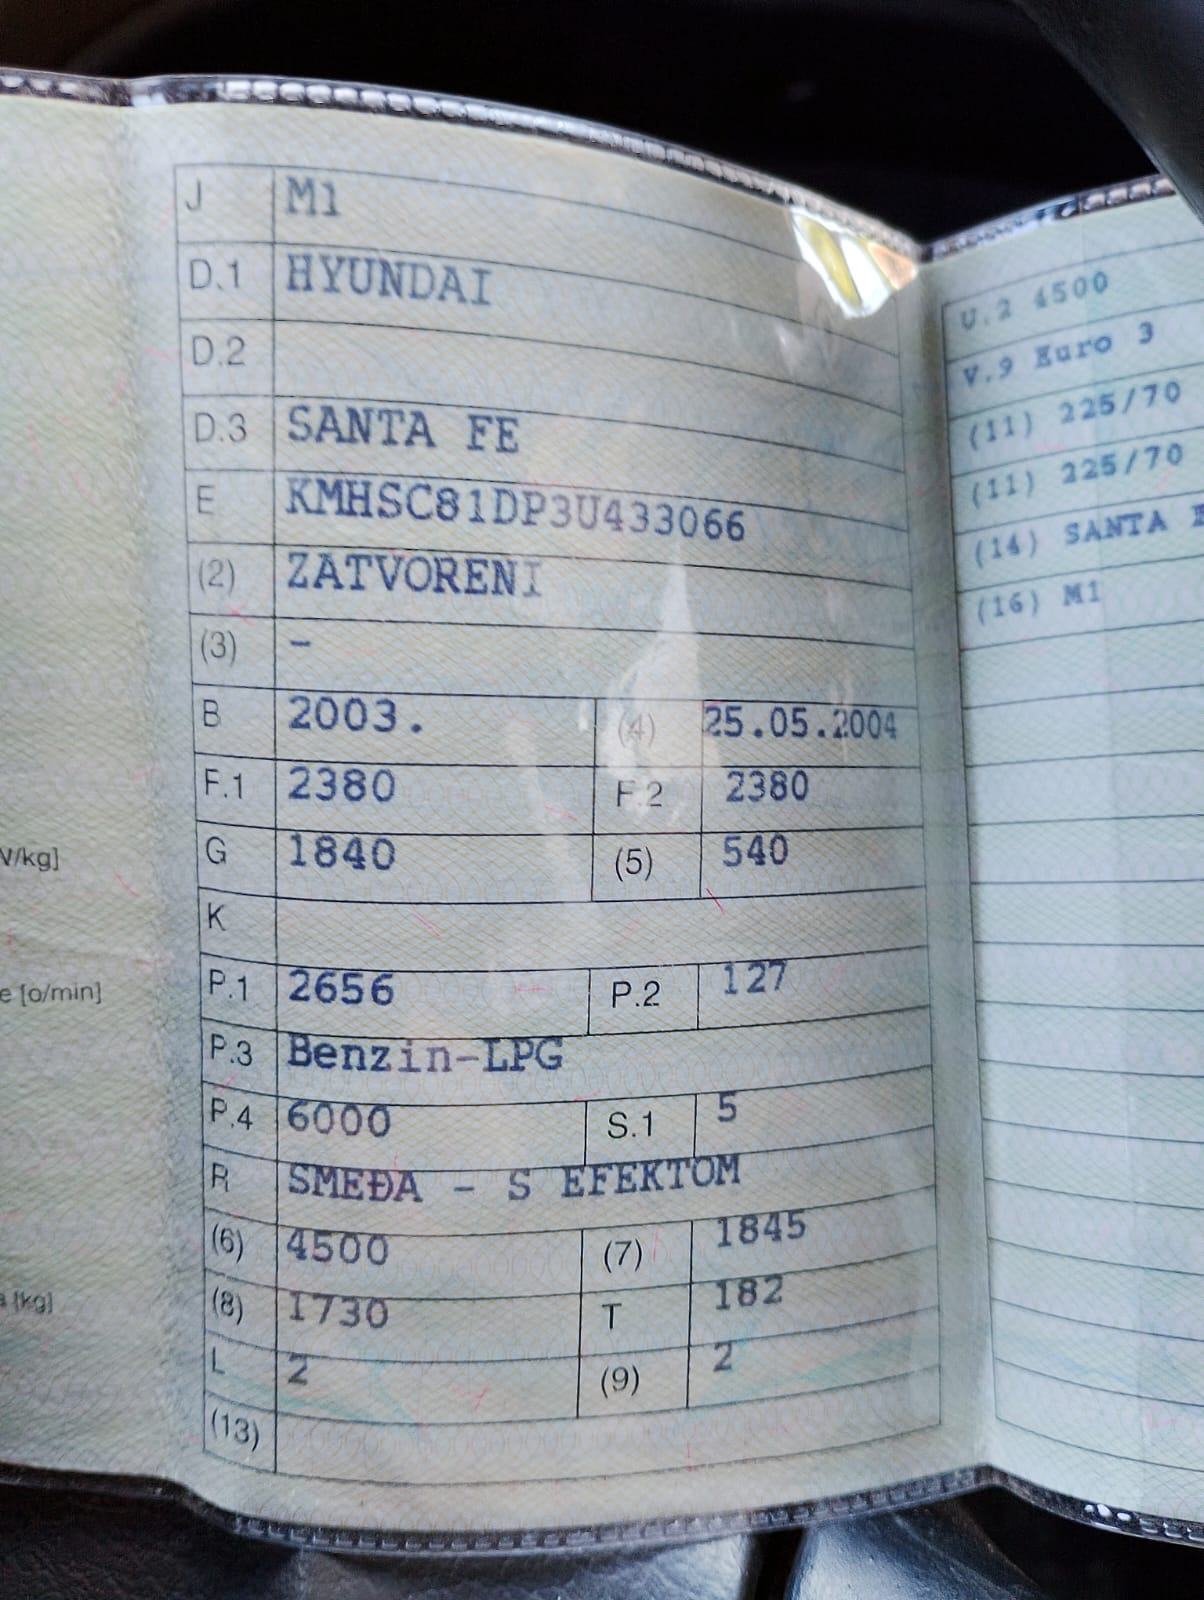 J M1
D.1 HYUNDAI
D.2
D.3 SANTA FE
E KMHSC81DP3U433066
(2) ZATVORENI
(3) -
B 2003. (4) 25.05.2004
F.1 2380 F.2 2380
G 1840 (5) 540
K
P.1 2656 P.2 127
P.3 Benzin-LPG
P.4 6000 S.1 5
R SMEĐA - S EFEKTOM
(6) 4500 (7) 1845
(8) 1730 T 182
L 2 (9) 2
(13)
V/kg]
e [o/min]
a [kg]
U.2 4500
V.9 Euro 3
(11) 225/70
(11) 225/70
(14) SANTA
(16) M1